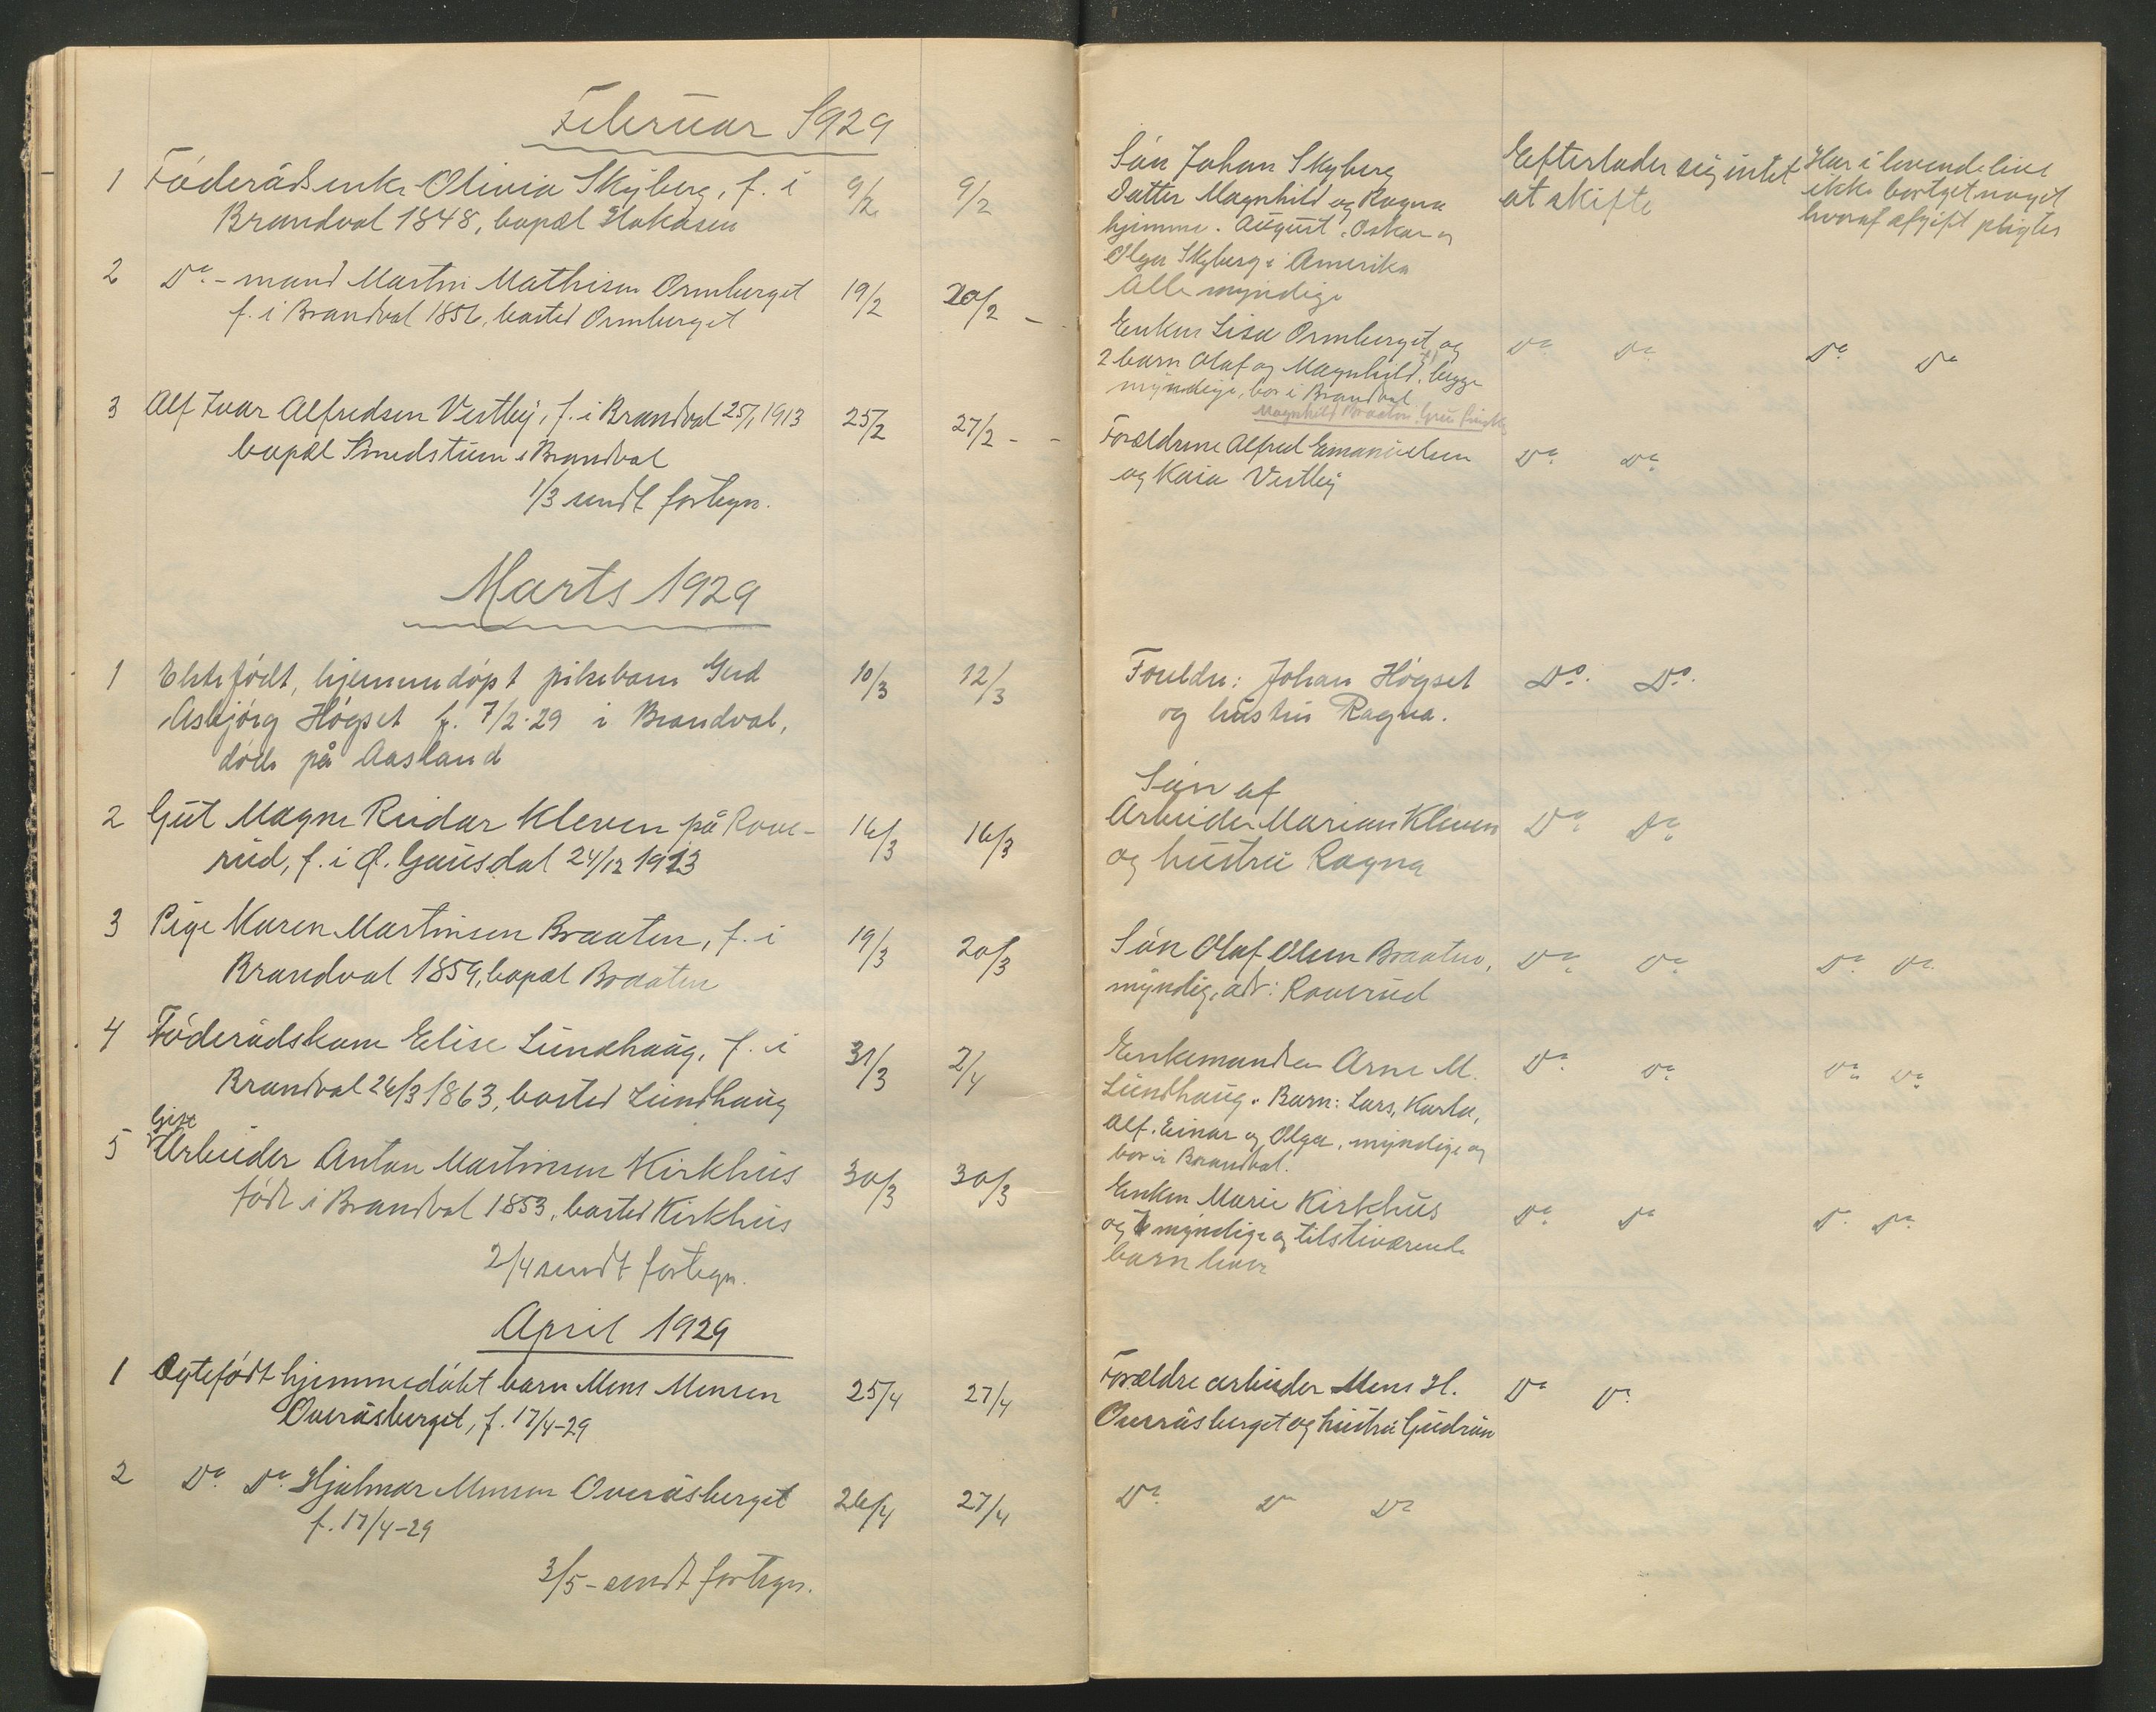 Februar 1929
1 Föderådsenke Olivia Skyberg, f. i 9/2 9/2
Brandval 1848, bopæl Hakåsen
2 Do - mand Martin Mathisen Ormberget 19/2 20/2 -
f. i Brandval 1856, bosted Ormberget
3 Alf Ivar Alfredsen Vestby, f. i Brandval 25/1 1913 25/2 27/2 - -
bopæl Smedstuen i Brandval
1/3 sendt fortegn.
Marts 1929
1 Ektefödt, hjemmedöpt pikebarn Gerd 10/3 12/3
Asbjörg Högset f. 7/2-29 i Brandval,
döde på Aasland
2 Gut Magne Reidar Kleven på Rove- 16/3 16/3
rud, f. i Ø. Gausdal 24/12 1923
3 Pige Karen Martinsen Braaten, f. i 19/3 20/3
Brandval 1859, bopæl Braaten
4 Föderådskone Elise Lundhaug, f. i 31/3 2/4
Brandval 26/3 1863, bosted Lundhaug
Gift
5 Arbeider Anton Martinsen Kirkhus 30/3 30/3
född i Brandval 1853, bosted Kirkhus
2/4 sendt fortegn.
April 1929
1 Ægtefödt hjemmedöbt barn Mens Mensen 25/4 27/4
Overåsberget, f. 17/4-29
2 Do Do Hjalmar Mensen Overåsberget 26/4 27/4
f. 17/4-29
3/5 - sendt fortegn.
Sön Johan Skyberg Efterlader sig intet Har i levende live
Datter Magnhild og Ragna at skifte ikke bortget noget
hjemme. August, Oskar og hvoraf afgift pligtes
Olga Skyberg i Amerika
Alle myndige
Enken Lisa Ormberget og Do Do Do Do
2 barn Olaf og Magnhild, begge
myndige, bor i Brandval
Magnhild Braaten Grue Finsk.
Forældrene Alfred Emanuelsen Do Do
og Kaia Vestby
Foreldre: Johan Högset Do. Do.
og hustru Ragna.
Sön af
Arbeider Marian Kleven Do Do
og hustru Ragna
Sön Olaf Olsen Braaten, Do Do Do Do
myndig, adr: Roverud
Enkemanden Arne M. Do Do Do Do
Lundhaug. Barn: Lars, Karla,
Alf. Einar og Olga, myndige og
bor i Brandval.
Enken Marie Kirkhus Do Do Do Do
og myndige og tilstedværende
barn
Forældre arbeider Mens H. Do Do
Overåsberget og hustru Gudrun
Do Do Do